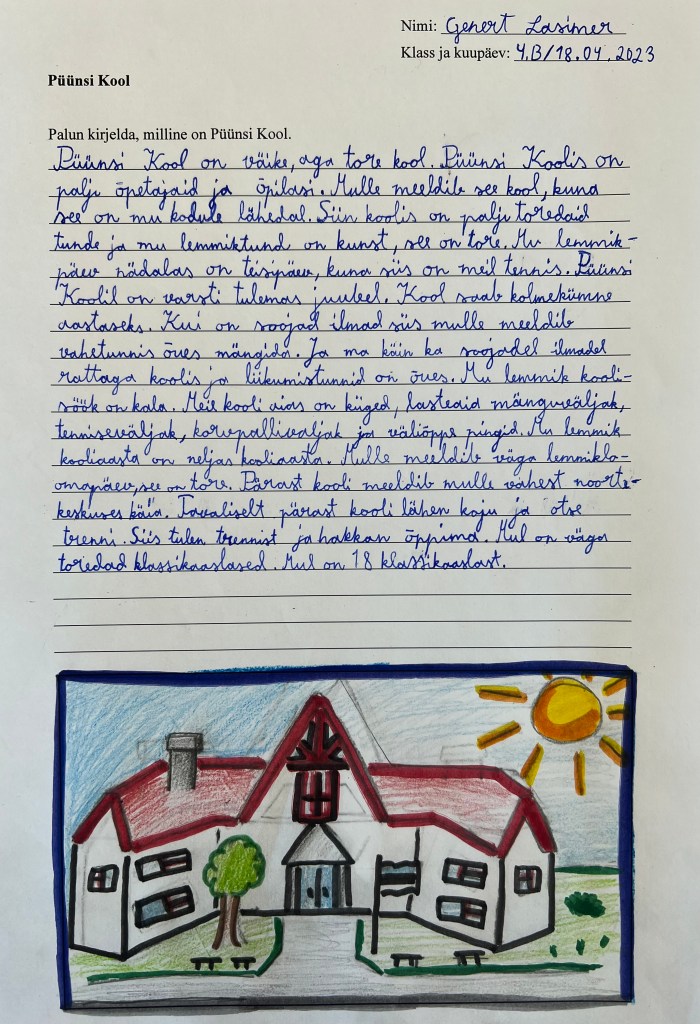 Nimi: Genert Lasimer
Klass ja kuupäev: 4.B/18.04.2023
Püünsi Kool
Palun kirjelda, milline on Püünsi Kool.
Püünsi Kool on väike, aga tore kool. Püünsi Koolis on
palju õpetajaid ja õpilasi. Mulle meeldib see kool, kuna
see on mu kodule lähedal. Siin koolis on palju toredaid
tunde ja mu lemmiktund on kunst, see on tore. Mu lemmik-
päev nädalas on teisipäev, kuna siis on meil tennis. Püünsi
Koolil on varsti tulemas juubel. Kool saab kolmekümne
aastaseks. Kui on soojad ilmad siis mulle meeldib
vahetunnis õues mängida. Ja ma käin ka soojadel ilmadel
rattaga koolis ja liikumistunnid on õues. Mu lemmik kooli-
söök on kala. Meie kooli aias on kiiged, lasteaia mänguväljak,
tenniseväljak, korvpalliväljak ja väliõppe pingid. Mu lemmik
kooliaasta on neljas kooliaasta. Mulle meeldib väga lemmiklo-
omapäev, see on tore. Pärast kooli meeldib mulle vahest noorte-
keskuses käia. Tavaliselt pärast kooli lähen koju ja otse
trenni. Siis tulen trennist ja hakkan õppima. Mul on väga
toredad klassikaaslased. Mul on 18 klassikaaslast.